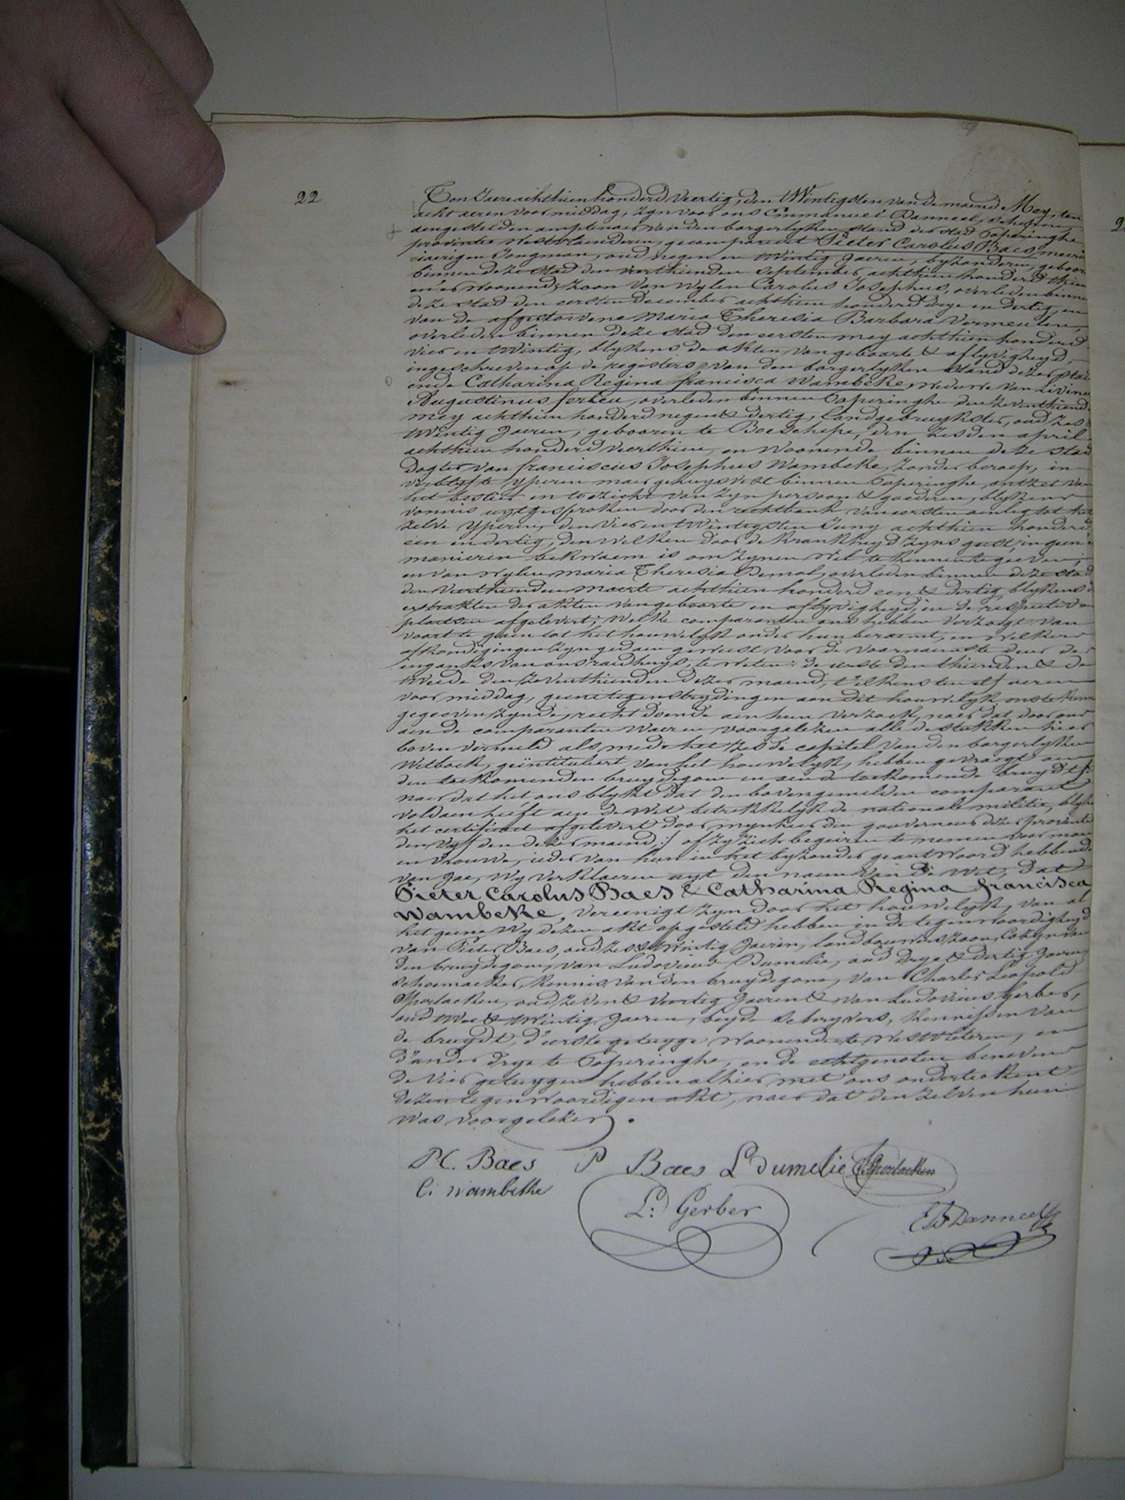 22
Ten Jaere achthien honderd veertig, den Twintigsten van de maend Mey, ten
acht uren voor middag, zyn voor ons Emmanuel Danneel, schepen
aengestelden amptenaer van den borgerlyken stand der stad Poperinghe
provintie Westvlaenderen, gecompareert Pieter Carolus Baes, meerder
jaerigen Jongman, oud negen en twintig Jaeren, byzonderen, geboor
binnen deze stad den veerthienden September achthien honderd thien
en er woonende, zoon van wylen Carolus Josephus, overleden binnen
deze stad den eersten december achthien honderd dryе en dertig, en
van de afgestorvene Maria Theresia Barbara Vermeulen,
overleden binnen deze stad den eersten mey achthien honderd
vier en twintig, blykens de akten van geboorte & aflyvigheyd,
ingeschreven op de registers van den borgerlyken stand dezer stad
ende Catharina Regina francisca Wambeke, weduwe van Livinus
Augustinus ferleu, overleden binnen Poperinghe den zeventhiende
mey achthien honderd negen & dertig, Landgebruykster, oud zes
twintig Jaeren, gebooren te Boeschepe, den zesden april
achthien honderd veerthien, en woonende binnen deze stad
dogter van franciscus Josephus Wambeke, zonder beroep, in
verblyf te yperen maer gehuysvest binnen Poperinghe, ontzet van
het bestier en toezicht van zyn persoon & goederen, blykens
vonnis uytgesproken door den rechtbank van eersten aenleg tot het
zelve yperen, den vier en twintigsten Juny achthien honderd
een en dertig, den welken door de krankheyd zyns geest, in geen
manieren bekwaem is om zynen wil te kennen te geven,
en van wylen maria Theresia Demol, overleden binnen deze stad
den veerthienden Maerte achthien honderd een & dertig, blykens d
extrakten der akten van geboorte en aflyvigheyd, in de respective
plaetsen afgelevert; Welke comparanten ons hebben verzogt van
voort te gaen tot het houwelyk onder hun beraemt, en welkers
afkondigingen zyn gedaen geweest voor de voornaemste deur der
ingangs van ons raedhuys, te weten: de eerste den thienden & de
tweede den zeventhienden dezer maend, t'elkens ten elf uren
voor middag, geene tegenstrydingen aen dit houwelyk ons te kennen
gegeven zynde, recht doende aen hun verzoek, naer dat door ons
aen de comparanten waren voorgelezen alle de stukken hier
boven vermeld als mede het zesde capitel van den borgerlyken
Wetboek, geïntituleert van het houwelyk, hebben gevraegt aen
den toekomenden bruydegom en aen de toekomende bruyd
naer dat het ons blykt dat den bovengemelden comparant
voldaen heeft aen de Wet betrekkelyk de nationale militie, blykens
het certificaet afgelevert door mynheer den gouverneur dezer provintie
den vyfden dezer maend; of zy zich begeiren te nemen voor man
en vrouwe, ieder van hun in het byzonder geantwoord hebbende
van Jae, Wy verklaeren uyt den naem van de Wet, dat
Pieter Carolus Baes & Catharina Regina francisca
Wambeke, vereenigt zyn door het houwelyk, van al
het geene Wy dezen akt opgesteld hebben in de tegenwoordigheyd
van Pieter Baes, oud zes & twintig Jaeren, landbouwers zoon, Cozyn van
den bruydegom, van Ludovicus Dumelie, oud drye & dertig Jaeren
schoemaeker, kennis van den bruydegom, van Charles Leopold
Sporlacken, oud zeven & veertig Jaeren & van Ludovicus Gerber,
oud twee & twintig Jaeren, beyde schryvers, kennissen van
de bruyd, d'eerste getuyge woonende te Westvleteren, en
d'ander drye te Poperinghe, en de echtgenoten benevens
de vier getuygen hebben alhier met ons onderteekent
dezen tegenwoordigen akt, naer dat den zelven hun
was voorgelezen.
P C. Baes P Baes L Dumelie C. Sporlacken
C: wambeke
L: Gerber
E Danneel